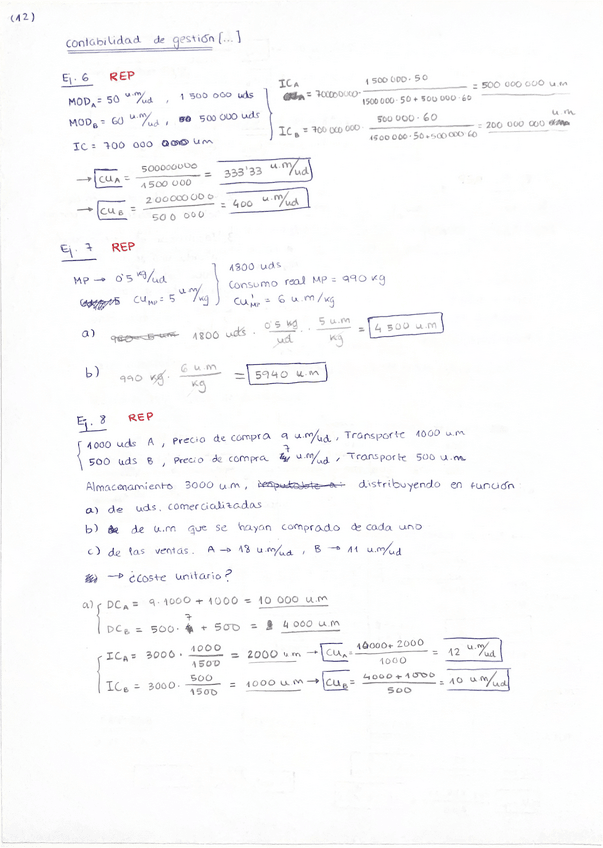 (12)
contabilidad de gestión [...]
Ej. 6 REP
MOD_A = 50 u.m/ud , 1 500 000 uds
MOD_B = 60 u.m/ud , 500 000 uds
IC = 700 000 000 um
IC_A = 700000000 · 1 500 000 · 50 / 1500 000 · 50 + 500 000 · 60 = 500 000 000 u.m
IC_B = 700 000 000 · 500 000 · 60 / 1500 000 · 50 + 500 000 · 60 = 200 000 000 u.m
→ CU_A = 500000000 / 1500 000 = 333'33 u.m/ud
→ CU_B = 200000000 / 500 000 = 400 u.m/ud
Ej. 7 REP
MP → 0'5 kg/ud
CU_MP = 5 u.m/kg
1800 uds
Consumo real MP = 990 kg
CU'_MP = 6 u.m/kg
a) 1800 uds · 0'5 kg/ud · 5 u.m/kg = 4 500 u.m
b) 990 kg · 6 u.m/kg = 5940 u.m
Ej. 8 REP
1000 uds A , Precio de compra 9 u.m/ud , Transporte 1000 u.m
500 uds B , Precio de compra 7 u.m/ud , Transporte 500 u.m
Almacenamiento 3000 u.m, distribuyendo en función:
a) de uds. comercializadas
b) de u.m que se hayan comprado de cada uno
c) de las ventas. A → 18 u.m/ud , B → 11 u.m/ud
→ ¿coste unitario?
a) DC_A = 9 · 1000 + 1000 = 10 000 u.m
DC_B = 500 · 7 + 500 = 4 000 u.m
IC_A = 3000 · 1000 / 1500 = 2000 u.m → CU_A = 10000 + 2000 / 1000 = 12 u.m/ud
IC_B = 3000 · 500 / 1500 = 1000 u.m → CU_B = 4000 + 1000 / 500 = 10 u.m/ud